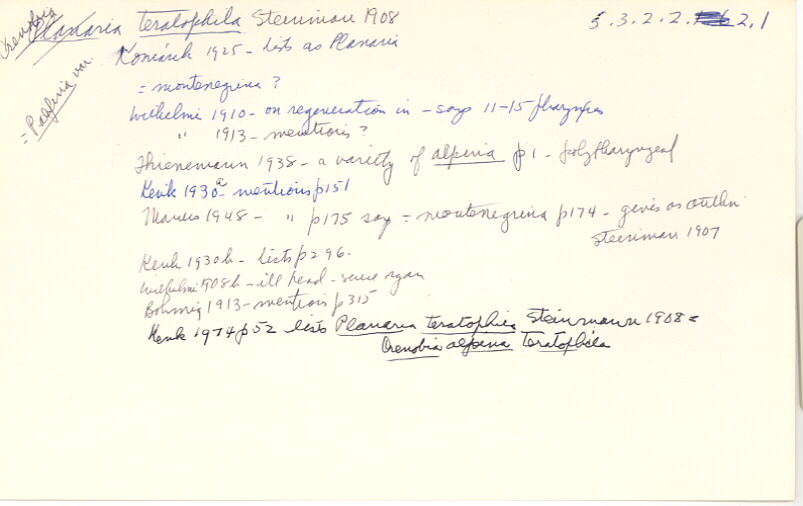 Crenobia
Planaria teratophila Steinmann 1908
5.3.2.2. 2.1
= P. alpina var.
Komárek 1925 - Lists as Planaria
= montenegrina ?
Wilhelmi 1910 - on regeneration in - says 11-15 pharynges
" 1913 - mentions ?
Thienemann 1938 - a variety of alpina p1 - polypharyngeal
Kenk 1930a - mentions p151
Marcus 1948 - " p175 say = montenegrina p174 - gives as author
Steinmann 1907
Kenk 1930b - lists p296.
Wilhelmi 1908b - ill head - sense organ
Böhmig 1913 - mentions p315
Kenk 1974 p52 lists Planaria teratophila Steinmann 1908 =
Crenobia alpina teratophila